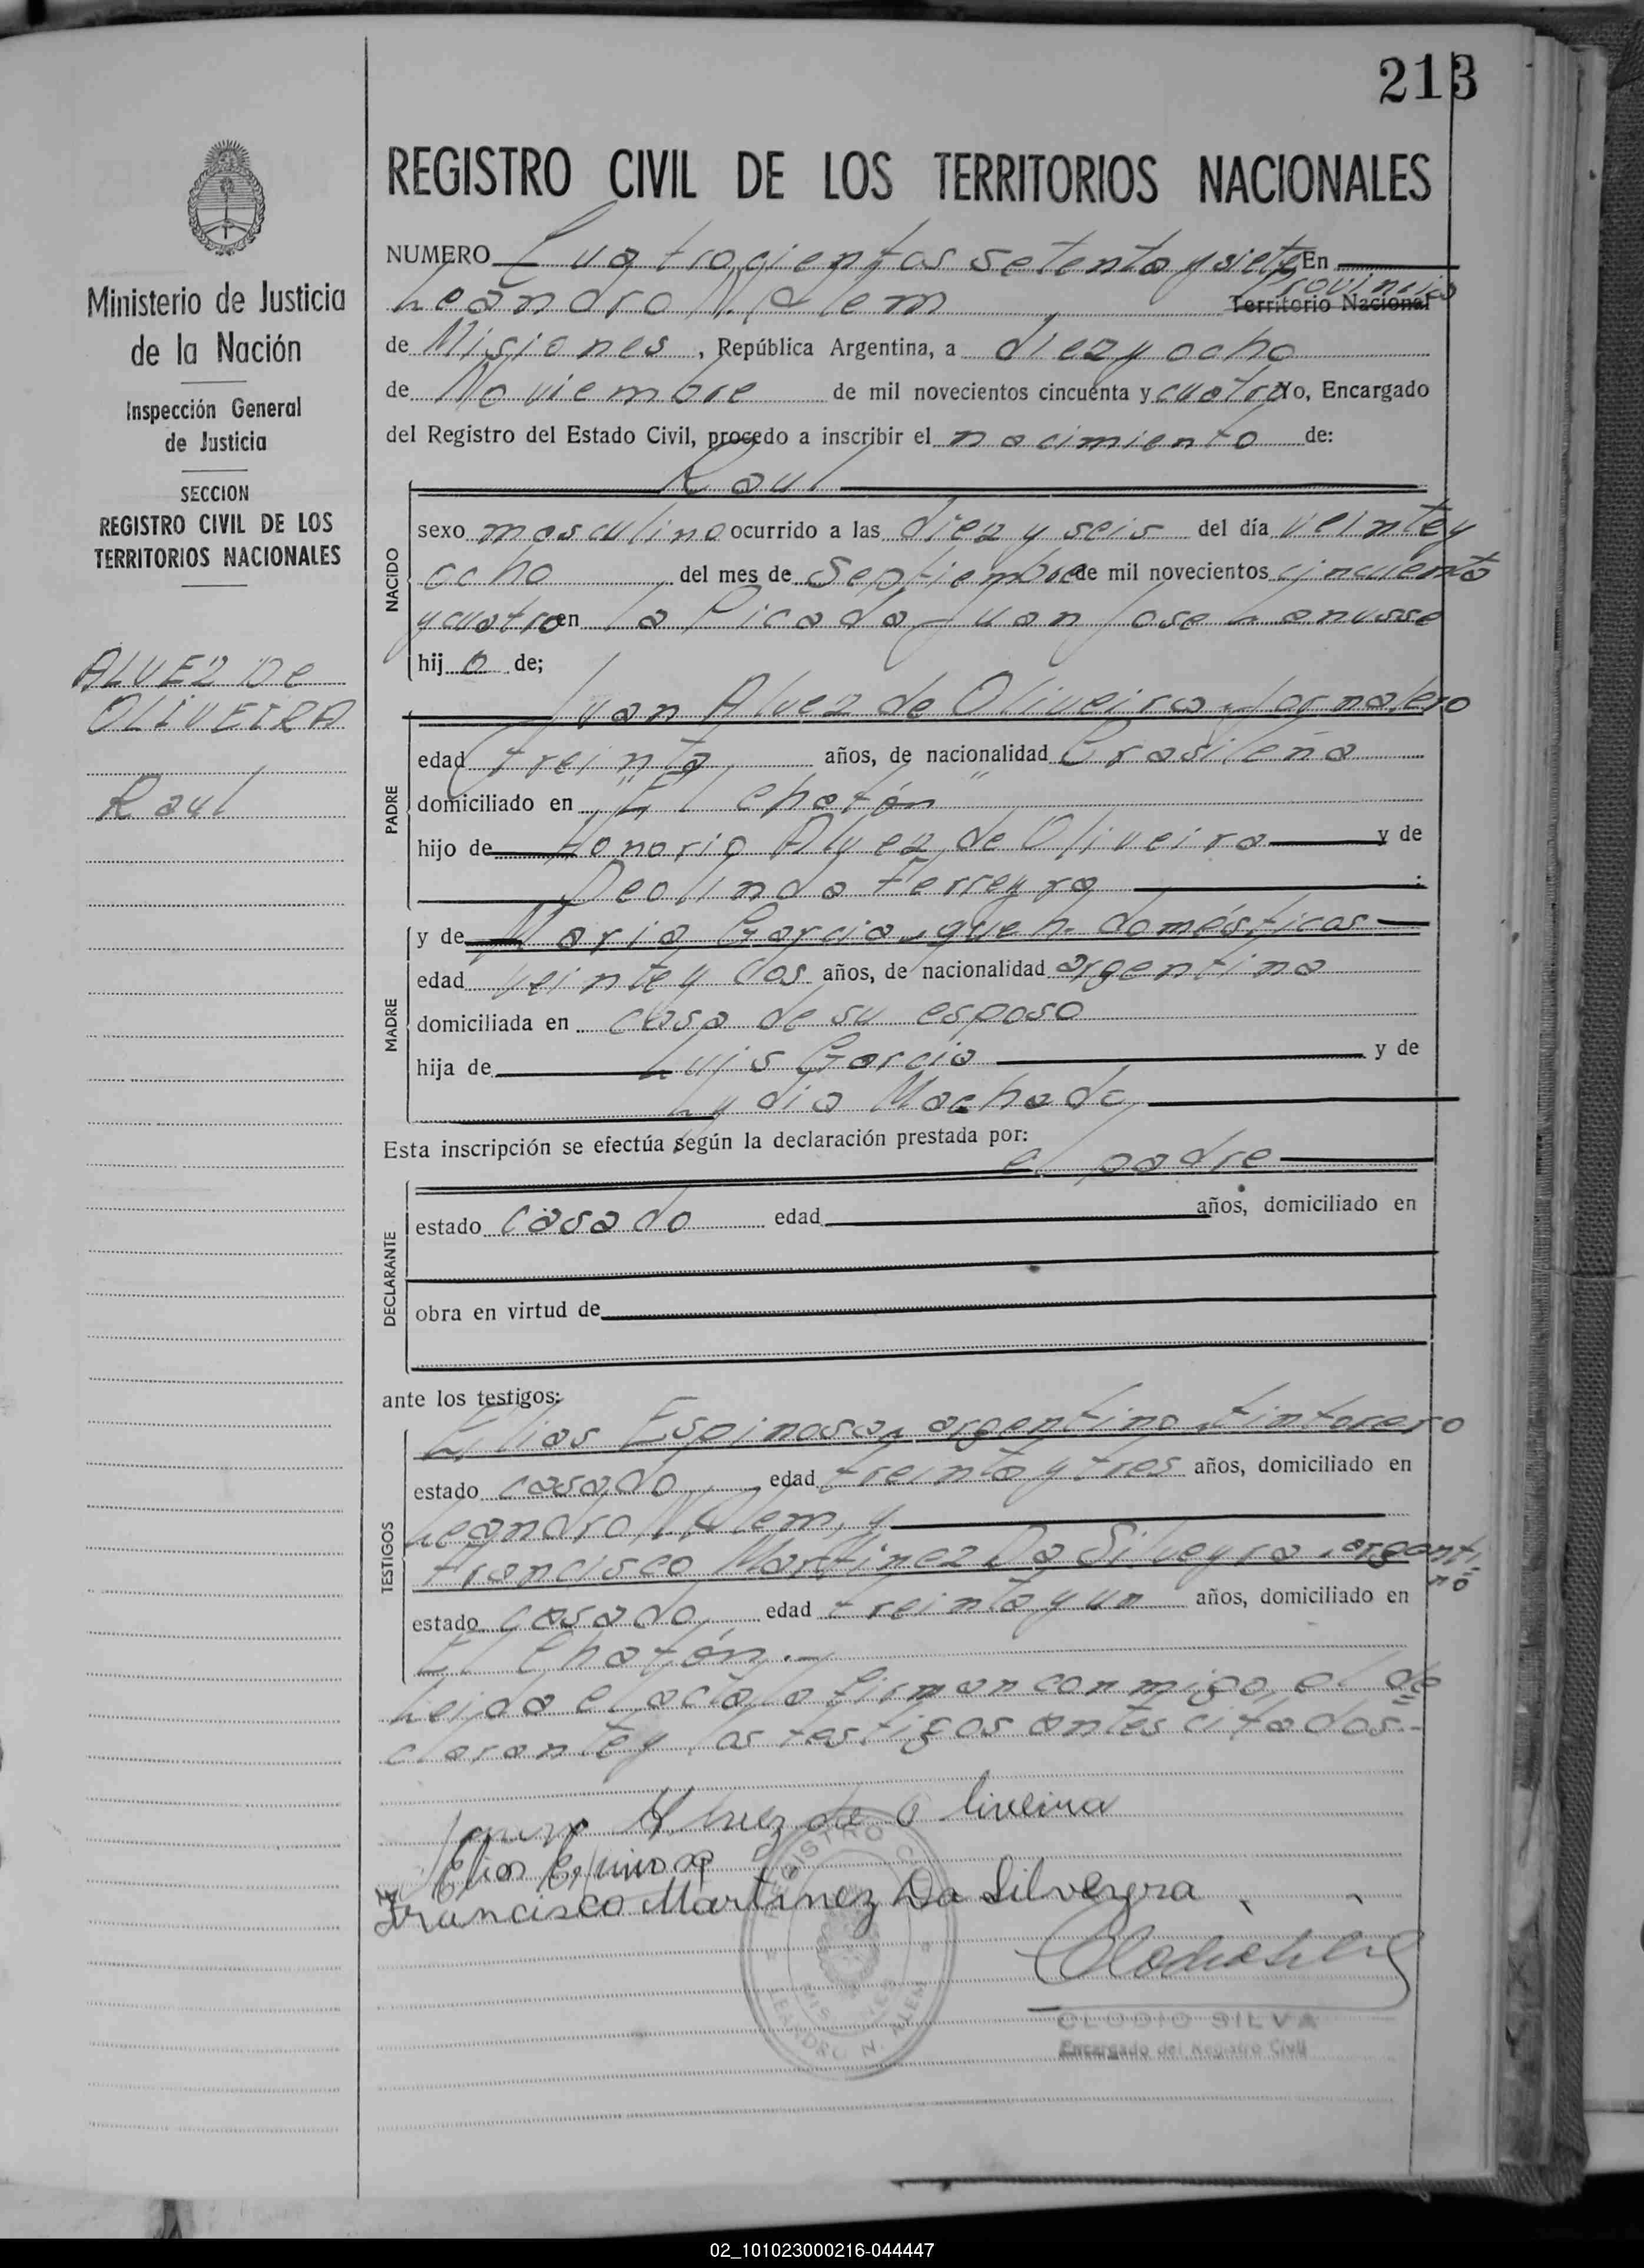 213
REGISTRO CIVIL DE LOS TERRITORIOS NACIONALES
Ministerio de Justicia
de la Nación
Inspección General
de Justicia
SECCION
REGISTRO CIVIL DE LOS
TERRITORIOS NACIONALES
ALVEZ De
OLIVEIRA
Raul
NUMERO Cuatrocientos setenta y siete En
Leandro N. Alem Provincia Territorio Nacional
de Misiones, República Argentina, a diez y ocho
de Noviembre de mil novecientos cincuenta y cuatro Yo, Encargado
del Registro del Estado Civil, procedo a inscribir el nacimiento de:
Raul
NACIDO
sexo masculino ocurrido a las diez y seis del día veinte y
ocho del mes de Septiembre de mil novecientos cincuenta
y cuatro en la Picada Juan Jose Lanusse
hij o de;
Juan Alvez de Oliveira, Jornalero
PADRE
edad treinta años, de nacionalidad Brasileña
domiciliado en "El chatón"
hijo de Honorio Alvez de Oliveira y de
Deolinda Ferreyra :
MADRE
y de Maria Garcia, queh. domésticos
edad veinte y dos años, de nacionalidad argentina
domiciliada en casa de su esposo
hija de Luis Garcia y de
Lydia Machado,
Esta inscripción se efectúa según la declaración prestada por:
el padre
DECLARANTE
estado casado edad años, domiciliado en
obra en virtud de
ante los testigos:
TESTIGOS
Elias Espinosa, argentino, tintorero
estado casado, edad treinta y tres años, domiciliado en
Leandro N. Alem, y
Francisco Martinez Da Silveyra, argenti=
no
estado casado, edad treinta y un años, domiciliado en
El Chatón.-
Leida el acta, la firman conmigo, el de=
clarante y los testigos antes citados.-
Juan Alvez de Oliveira
Elias Espinosa
Francisco Martinez Da Silveyra
REGISTRO CIVIL
MISIONES
LEANDRO N. ALEM
CLODIO SILVA
Encargado del Registro Civil
02_101023000216-044447